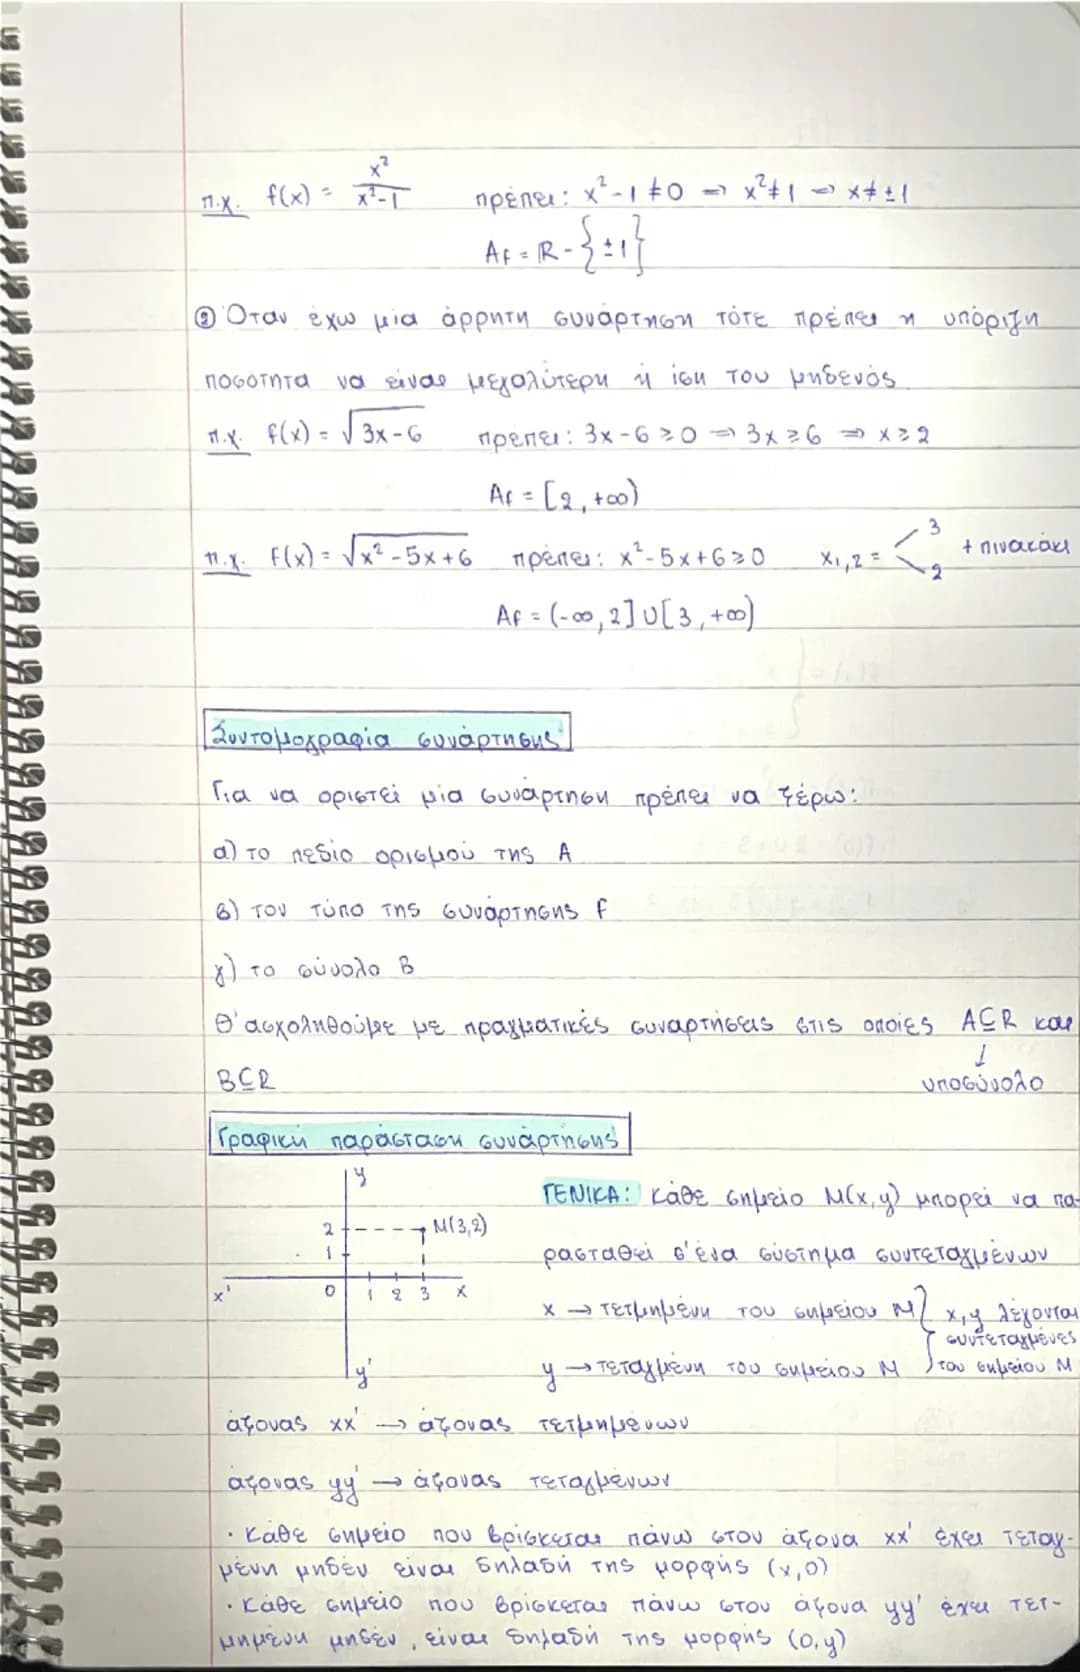 π.χ. f(x) = x²/(x²-1) πρέπει: x²-1≠0 ⇒ x²≠1 ⇒ x≠±1
Af = ℝ - {±1}
② Όταν έχω μία άρρητη συνάρτηση τότε πρέπει η υπόριζη
ποσότητα να είναι μεγαλύτερη ή ίση του μηδενός.
π.χ. f(x) = √(3x-6) πρέπει: 3x-6≥0 ⇒ 3x≥6 ⇒ x≥2
Af = [2, +∞)
π.χ. f(x) = √(x²-5x+6) πρέπει: x²-5x+6≥0 x₁,₂ = < 3 2 + πινακάκι
Af = (-∞, 2] ∪ [3, +∞)
Συντομογραφία συνάρτησης
Για να οριστεί μία συνάρτηση πρέπει να ξέρω:
α) το πεδίο ορισμού της A
β) τον τύπο της συνάρτησης f
γ) το σύνολο B
Θ' ασχοληθούμε με πραγματικές συναρτήσεις στις οποίες A⊆R και
B⊆R
↓
υποσύνολο
Γραφική παράσταση συνάρτησης
y
2 M(3,2)
1
x' 0 1 2 3 x
y'
ΓΕΝΙΚΑ: Κάθε σημείο M(x,y) μπορεί να πα-
ρασταθεί σ' ένα σύστημα συντεταγμένων
x → τετμημένη του σημείου M
y → τεταγμένη του σημείου M
} x,y λέγονται
συντεταγμένες
του σημείου M
άξονας xx' → άξονας τετμημένων
άξονας yy' → άξονας τεταγμένων
· Κάθε σημείο που βρίσκεται πάνω στον άξονα xx' έχει τεταγ-
μένη μηδέν είναι δηλαδή της μορφής (x,0)
· Κάθε σημείο που βρίσκεται πάνω στον άξονα yy' έχει τετ-
μημένη μηδέν, είναι δηλαδή της μορφής (0,y)